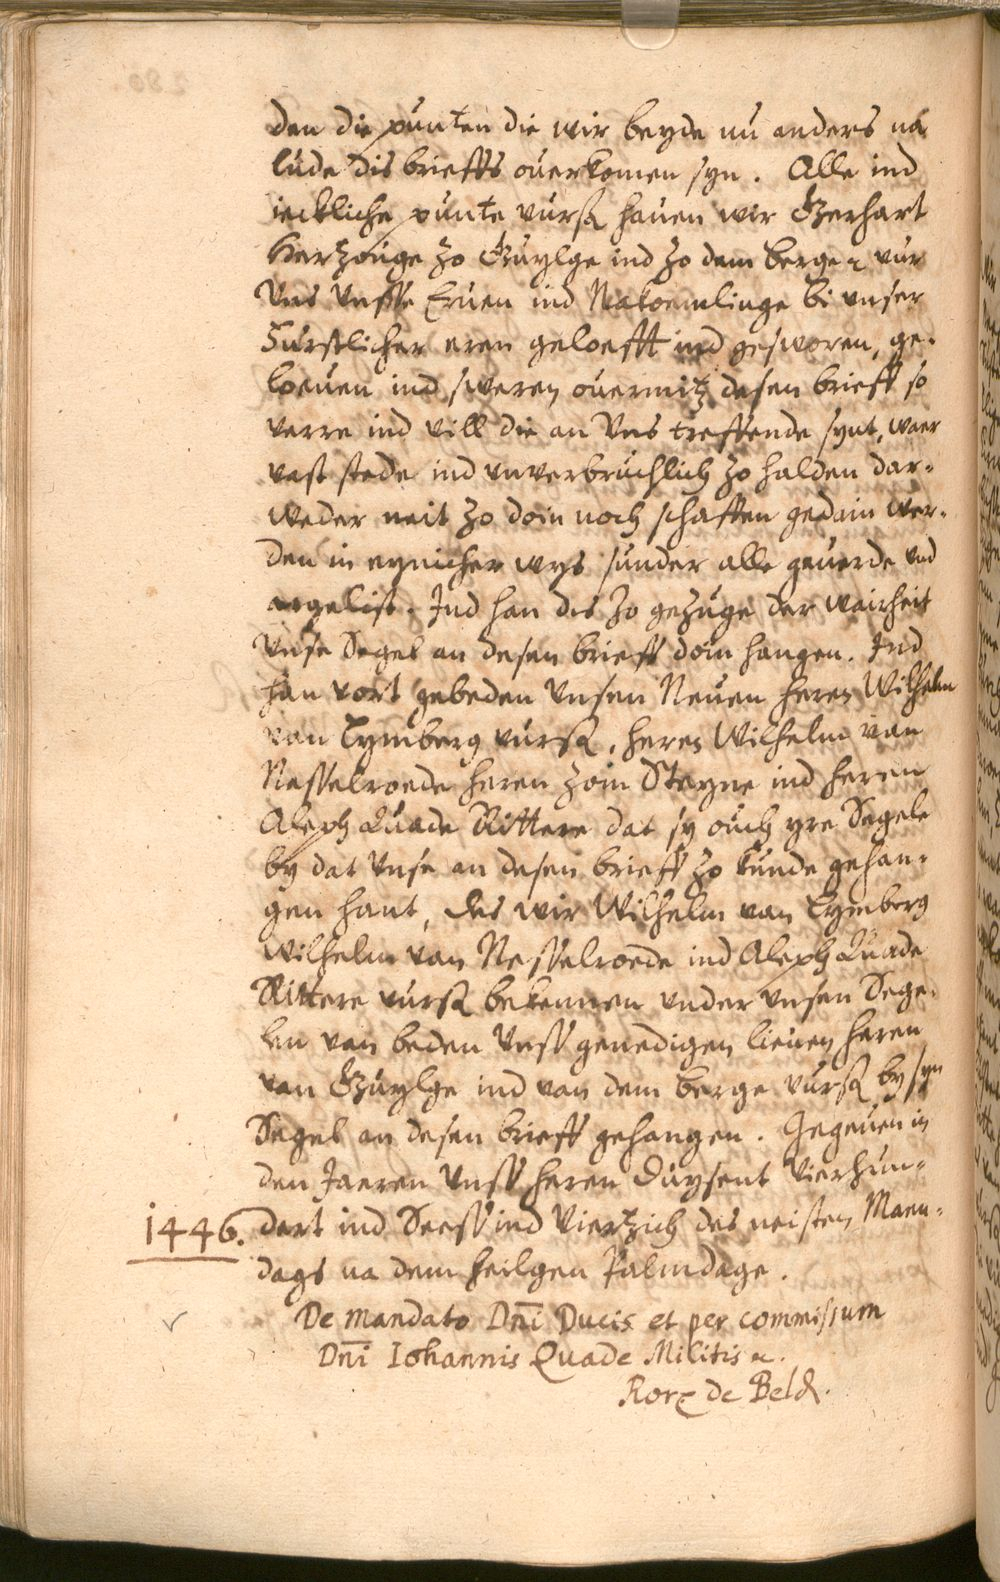 den die punten die wir beyde nu anders na
lude dis brieffs ouerkomen syn. Alle ind
ieckliche punte vurs. hauen wir Gerhart
Hertzouge zo Guylge ind zo dem Berge &c vur
Uns Unsse Eruen ind Nakoemlinge bi unser
Furstlicher eren geloefft ind gesworen, ge-
loeuen ind sweren ouermitz desen brieff so
verre ind vill die an Uns treffende synt, waer
vast stede ind unverbruchlich zo halden dar-
weder neit zo doin noch schaffen gedain wer-
den in eynicher wys sunder alle geuerde und
argelist. Ind han des zo gezuge der wairheit
Unse Segel an desen brieff doin hangen. Ind
han vort gebeden Unsen Neuen heren Wilhelm
van Lymberg vurs., heren Wilhelm van
Nesselroede heren zom Steyne ind heren
Aleph Quade Rittere dat sy ouch yre Segele
by dat Unse an desen brieff zo kunde gehan-
gen hant, des wir Wilhelm van Lymberg
Wilhelm van Nesselroede ind Aleph Quade
Rittere vurs. bekennen under unsen Sege-
len van beden Unss genedigen lieuen heren
van Guylge ind van dem Berge vurs. by syn
Segel an desen brieff gehangen. Gegeuen in
den Jaeren Unss heren Duysent Vierhun-
1446. dert ind Seess ind Viertzich des neisten Maen-
dags na dem heilgen Palmdage.
De mandato Dni Ducis et per commissum
Dni Iohannis Quade Militis &c.
de Beld.